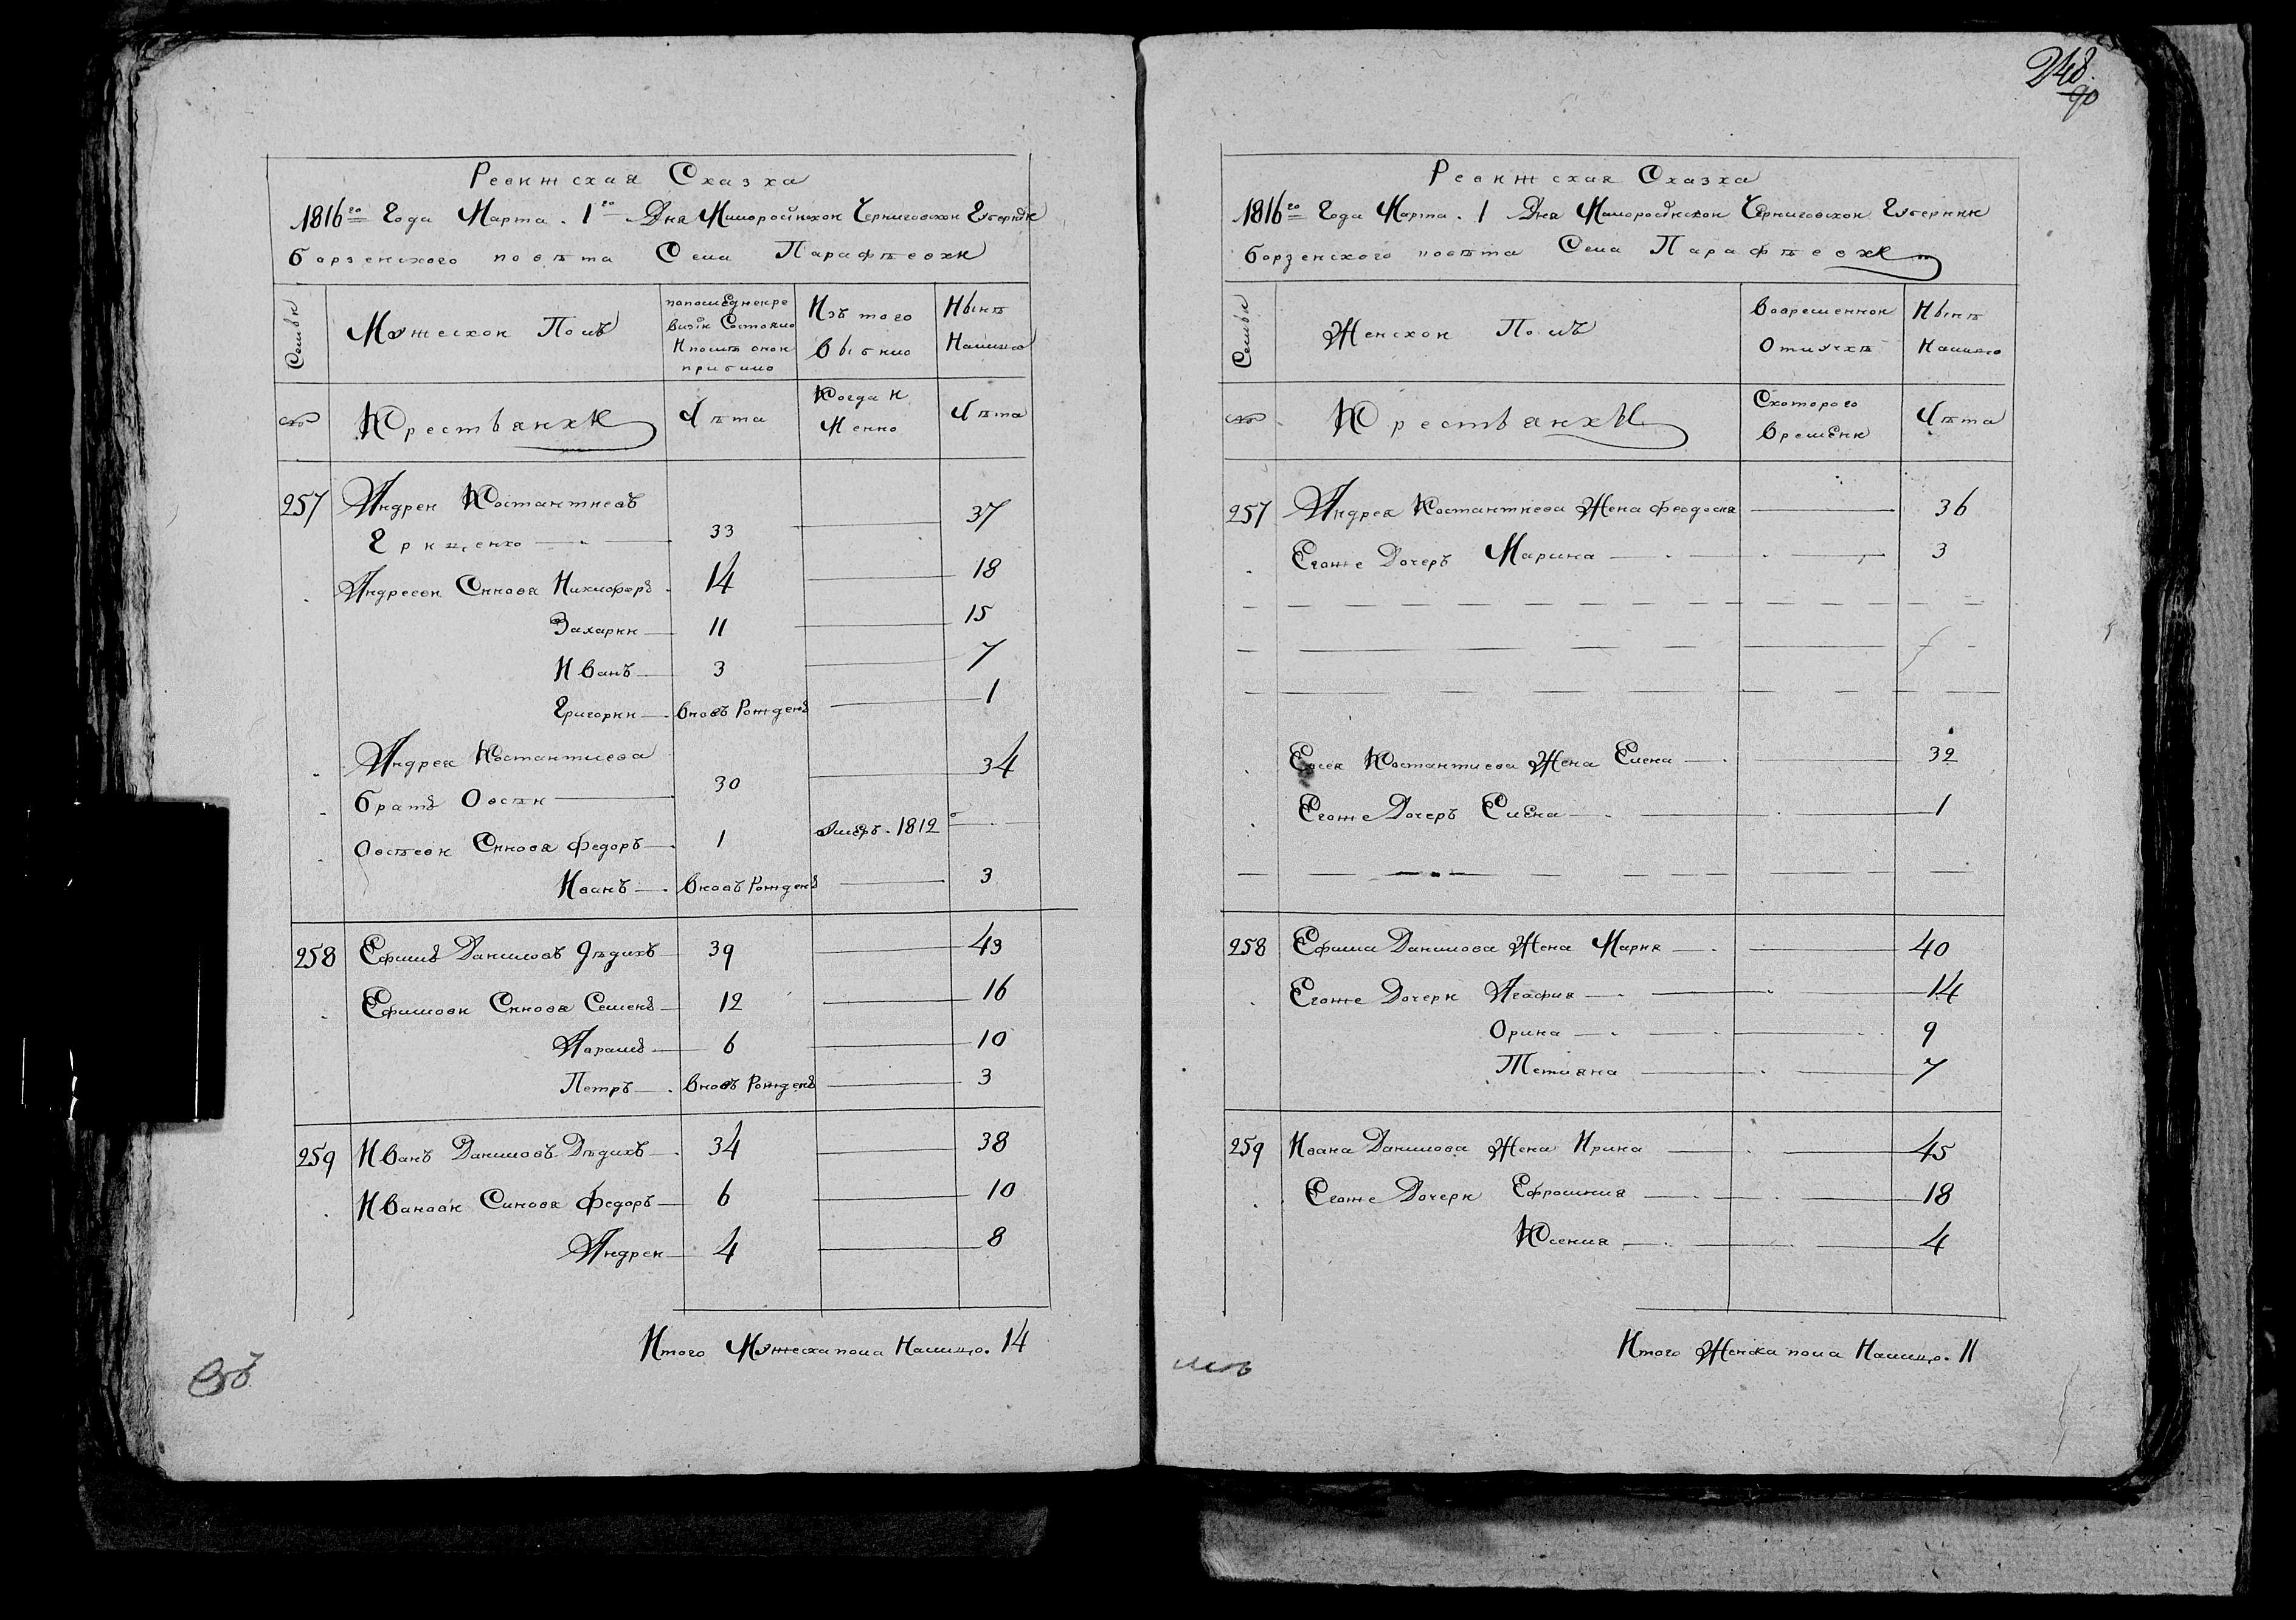 Ревижская Сказка
1816го Года Марта. 1го Дня Малоросійской Черниговской Губерніи
борзенского повѣта Села Парафѣевки
Семьи
Мужеской Полъ
попоследнейре
визіи Состояло
И послѣ оной
прибыло
Изъ того
Выбыло
Нынѣ
Налицо
№
Крестьянхи
Лѣта
Когда И
Менно
Лѣта
257 Андрей Костантиевъ
Грищенко 33 37
Андреевы Сынова Никифоръ 14 18
Захарий 11 15
Иванъ 3 7
Григорий вновъ Рожденъ 1
Андрея Костантиева
братъ Овсѣй 30 34
Овсѣевы Сынова Федоръ 1 Умеръ. 1812
Иванъ вновъ Рожденъ 3
258 Ефимъ Даниловъ Дѣдихъ 39 43
Ефимовы Сынова Семенъ 12 16
Абрамъ 6 10
Петръ вновъ Рожденъ 3
259 Иванъ Даниловъ Дѣдихъ 34 38
Ивановы Сынова Федоръ 6 10
Андрей 4 8
Итого Мужеска пола Налицо. 14
248.
90
Ревижская Сказка
1816го Года Марта. 1 Дня Малоросійской Черниговской Губернии
борзенского повѣта Села Парафѣевки
Семьи
Женской Полъ
Вовременной
Отлучхѣ
Нынѣ
Налицо
№
Крестьянхи
Скоторого
Времени
Лѣта
257 Андрея Костантиева Жена Феодосия 36
Егоже Дочеръ Марина 3
Евсея Костантиева Жена Елена 32
Егоже Дочеръ Елена 1
258 Ефима Данилова Жена Мария 40
Егоже Дочери Агафия 14
Орина 9
Тетияна 7
259 Ивана Данилова Жена Ирина 45
Егоже Дочери Ефросиния 18
Ксения 4
Итого Женска пола Налицо. 11